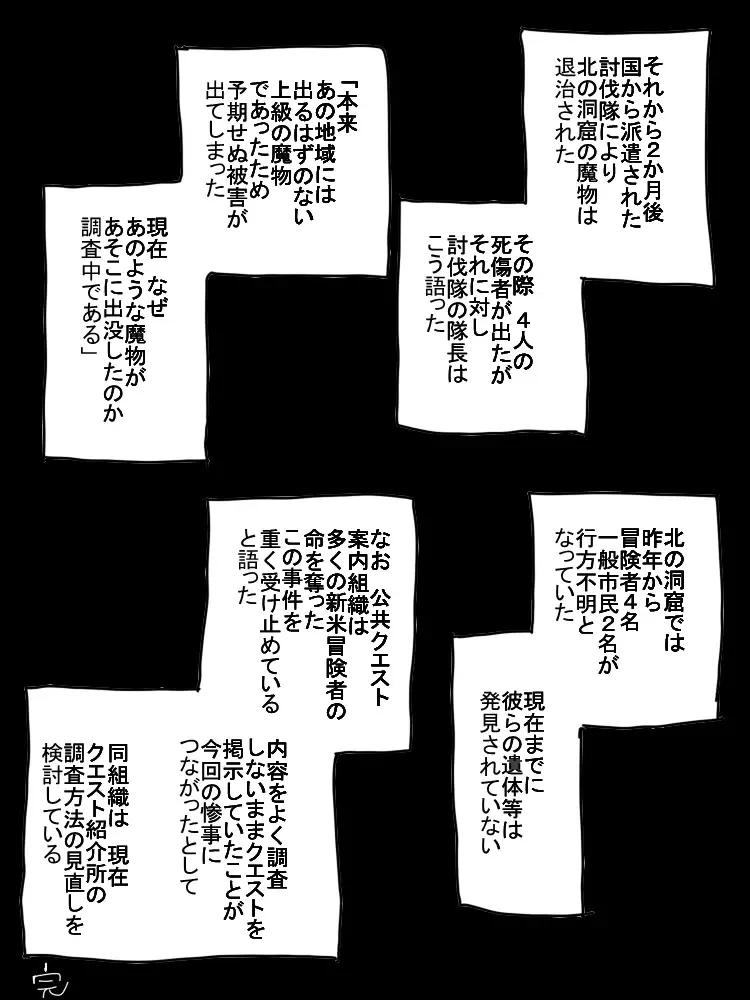 それから2か月後
国から派遣された
討伐隊により
北の洞窟の魔物は
退治された
その際　4人の
死傷者が出たが
それに対し
討伐隊の隊長は
こう語った
「本来
あの地域には
出るはずのない
上級の魔物
であったため
予期せぬ被害が
出てしまった
現在　なぜ
あのような魔物が
あそこに出没したのか
調査中である」
北の洞窟では
昨年から
冒険者4名
一般市民2名が
行方不明と
なっていた
現在までに
彼らの遺体等は
発見されていない
なお　公共クエスト
案内組織は
多くの新米冒険者の
命を奪った
この事件を
重く受け止めている
と語った
内容をよく調査
しないままクエストを
掲示していたことが
今回の惨事に
つながったとして
同組織は　現在
クエスト紹介所の
調査方法の見直しを
検討している
完